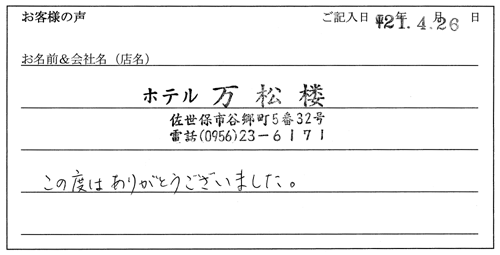 お客様の声 ご記入日 平21年.4月.26日
お名前&会社名(店名)
ホテル 万松楼
佐世保市谷郷町5番32号
電話(0956)23-6171
この度はありがとうございました。